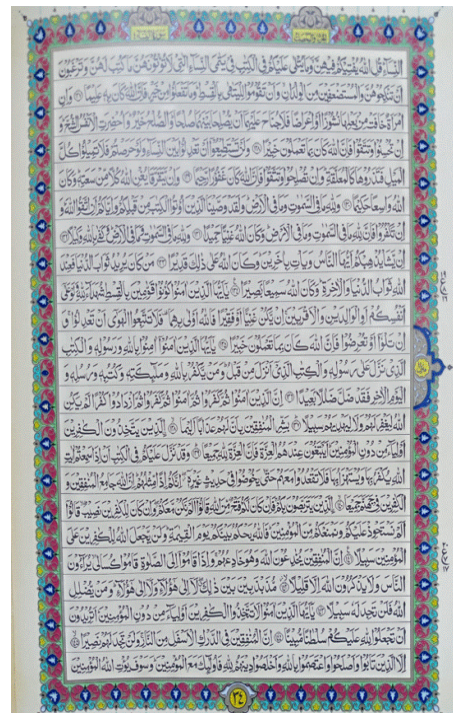 النساء قل الله يفتيكم فيهن وما يتلى عليكم في الكتب في يتمى النساء التي لا تؤتونهن ما كتب لهن وترغبون
ان تنكحوهن والمستضعفين من الولدان وان تقوموا لليتمى بالقسط وما تفعلوا من خير فان الله كان به عليما ۝ وان
امراة خافت من بعلها نشوزا او اعراضا فلا جناح عليهما ان يصلحا بينهما صلحا والصلح خير واحضرت الانفس الشح و
ان تحسنوا وتتقوا فان الله كان بما تعملون خبيرا ۝ ولن تستطيعوا ان تعدلوا بين النساء ولو حرصتم فلا تميلوا كل
الميل فتذروها كالمعلقة وان تصلحوا وتتقوا فان الله كان غفورا رحيما ۝ وان يتفرقا يغن الله كلا من سعته وكان
الله واسعا حكيما ۝ ولله ما في السموت وما في الارض ولقد وصينا الذين اوتوا الكتب من قبلكم واياكم ان اتقوا الله و
ان تكفروا فان لله ما في السموت وما في الارض وكان الله غنيا حميدا ۝ ولله ما في السموت وما في الارض وكفى بالله وكيلا ۝
ان يشا يذهبكم ايها الناس ويات باخرين وكان الله على ذلك قديرا ۝ من كان يريد ثواب الدنيا فعند
الله ثواب الدنيا والاخرة وكان الله سميعا بصيرا ۝ يايها الذين امنوا كونوا قومين بالقسط شهداء لله ولو على
انفسكم او الوالدين والاقربين ان يكن غنيا او فقيرا فالله اولى بهما فلا تتبعوا الهوى ان تعدلوا و
ان تلوا او تعرضوا فان الله كان بما تعملون خبيرا ۝ يايها الذين امنوا امنوا بالله ورسوله والكتب
الذي نزل على رسوله والكتب الذي انزل من قبل ومن يكفر بالله وملئكته وكتبه ورسله و
اليوم الاخر فقد ضل ضللا بعيدا ۝ ان الذين امنوا ثم كفروا ثم امنوا ثم كفروا ثم ازدادوا كفرا لم يكن
الله ليغفر لهم ولا ليهديهم سبيلا ۝ بشر المنفقين بان لهم عذابا اليما ۝ الذين يتخذون الكفرين
اولياء من دون المؤمنين ايبتغون عندهم العزة فان العزة لله جميعا ۝ وقد نزل عليكم في الكتب ان اذا سمعتم ايت
الله يكفر بها ويستهزا بها فلا تقعدوا معهم حتى يخوضوا في حديث غيره انكم اذا مثلهم ان الله جامع المنفقين و
الكفرين في جهنم جميعا ۝ الذين يتربصون بكم فان كان لكم فتح من الله قالوا الم نكن معكم وان كان للكفرين نصيب قالوا
الم نستحوذ عليكم ونمنعكم من المؤمنين فالله يحكم بينكم يوم القيمة ولن يجعل الله للكفرين على
المؤمنين سبيلا ۝ ان المنفقين يخدعون الله وهو خادعهم واذا قاموا الى الصلوة قاموا كسالى يراءون
الناس ولا يذكرون الله الا قليلا ۝ مذبذبين بين ذلك لا الى هؤلاء ولا الى هؤلاء ومن يضلل
الله فلن تجد له سبيلا ۝ يايها الذين امنوا لا تتخذوا الكفرين اولياء من دون المؤمنين اتريدون
ان تجعلوا لله عليكم سلطنا مبينا ۝ ان المنفقين في الدرك الاسفل من النار ولن تجد لهم نصيرا ۝
الا الذين تابوا واصلحوا واعتصموا بالله واخلصوا دينهم لله فاولئك مع المؤمنين وسوف يؤت الله المؤمنين